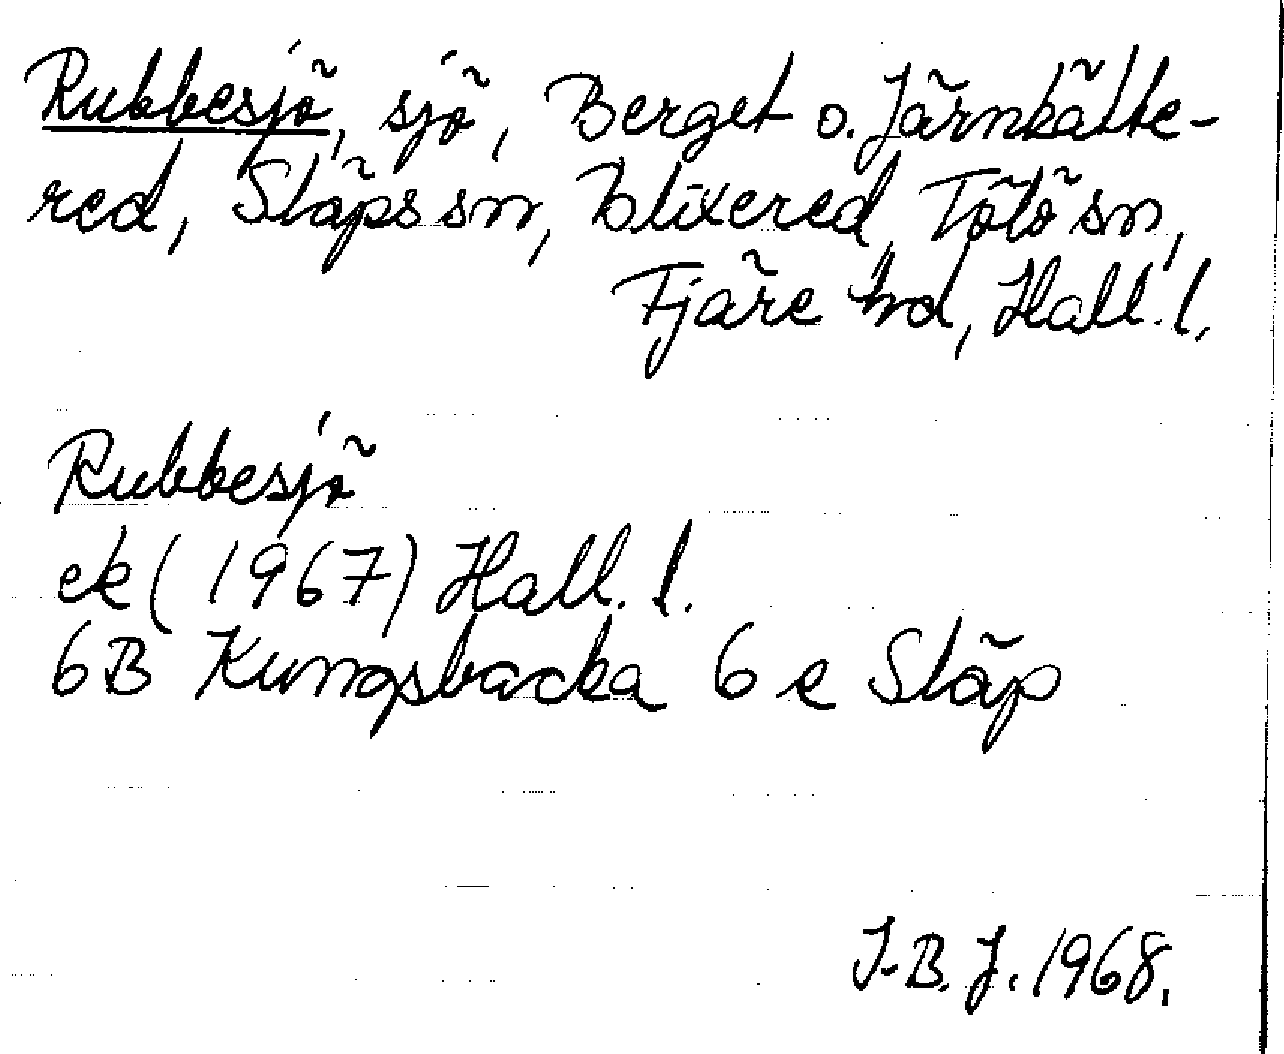 Rubbesjö, sjö, Berget o. Järnkälte-
red, Släps sn, Blixered, Tölö sn,
Fjäre hd, Hall. l.
Rubbesjö
ek (1967) Hall. l.
6B Kungsbacka 6 e Släp
I-B. J. 1968.